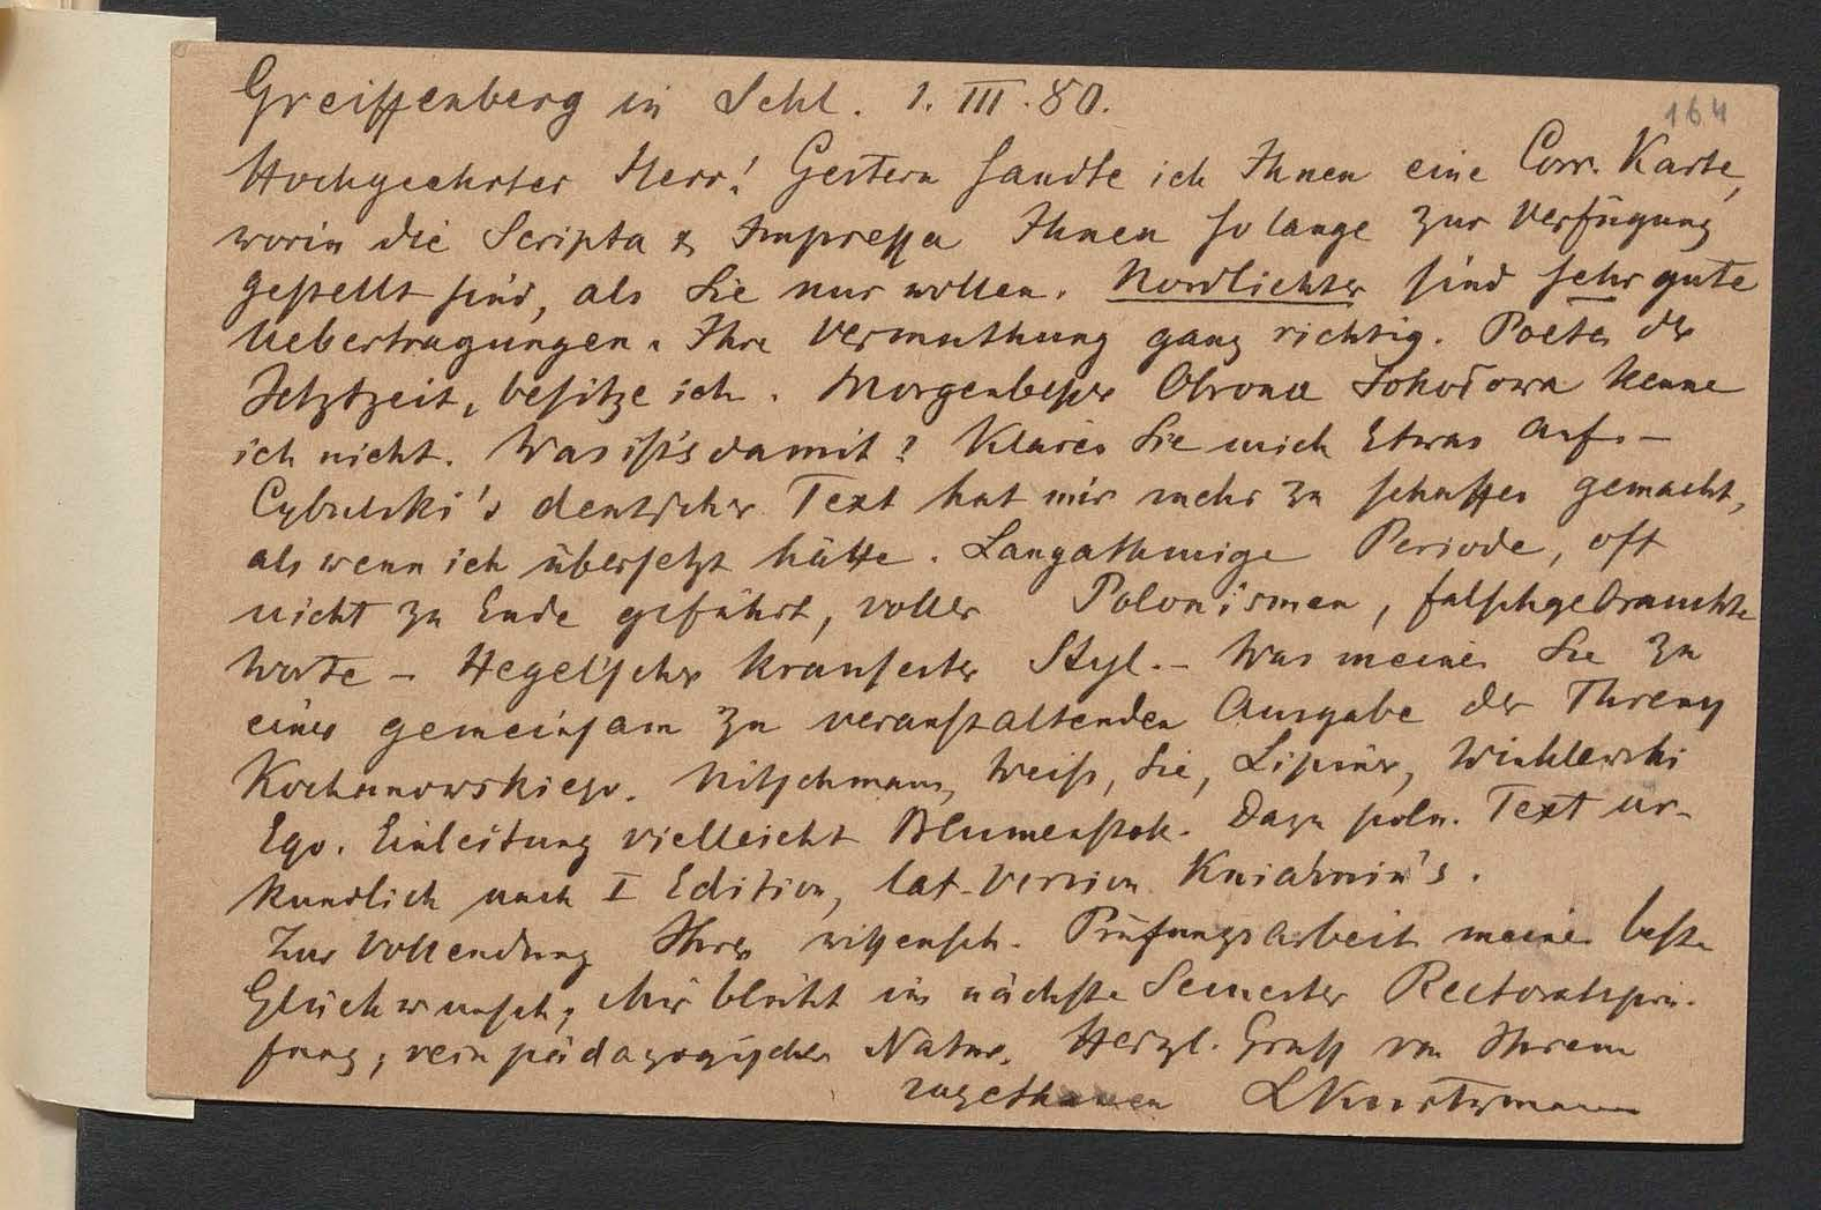 Greiffenberg in Schl. 1. III. 80.
164
Hochgeehrter Herr! Gestern sandte ich Ihnen eine Corr. Karte,
worin die Scripta & Impressa Ihnen so lange zur Verfügung
gestellt sind, als Sie nur wollen. Nordlichter sind sehr gute
Uebertragungen. Ihre Vermuthung ganz richtig. Poeten der
Jetztzeit, besitze ich. Morgenbesser Obrona Sokołowa kenne
ich nicht. Was ist's damit? Klären Sie mich Etwas auf. –
Cybulski's deutscher Text hat mir mehr zu schaffen gemacht,
als wenn ich übersetzt hätte. Langathmige Periode, oft
nicht zu Ende geführt, voller Polonismen, falschgebrauchte
Worte – Hegel'scher krausester Styl. – Was meinen Sie zu
einer gemeinsam zu veranstaltenden Ausgabe der Threny
Kochanowskiego. Nitschmann, Weiss, Sie, Lipiner, Winklewski
Ego. Einleitung vielleicht Blumenstok. Dazu poln. Text ur-
kundlich nach I Edition, lat. Version Kniaźnin's.
Zur Vollendung Ihrer wissensch. Prüfungsarbeit meinen besten
Glückwunsch; Mir blüht im nächsten Semester Rectoratsprü-
fung, rein pädagogischer Natur. Herzl. Gruss von Ihrem
zugethanen LKurtzmann